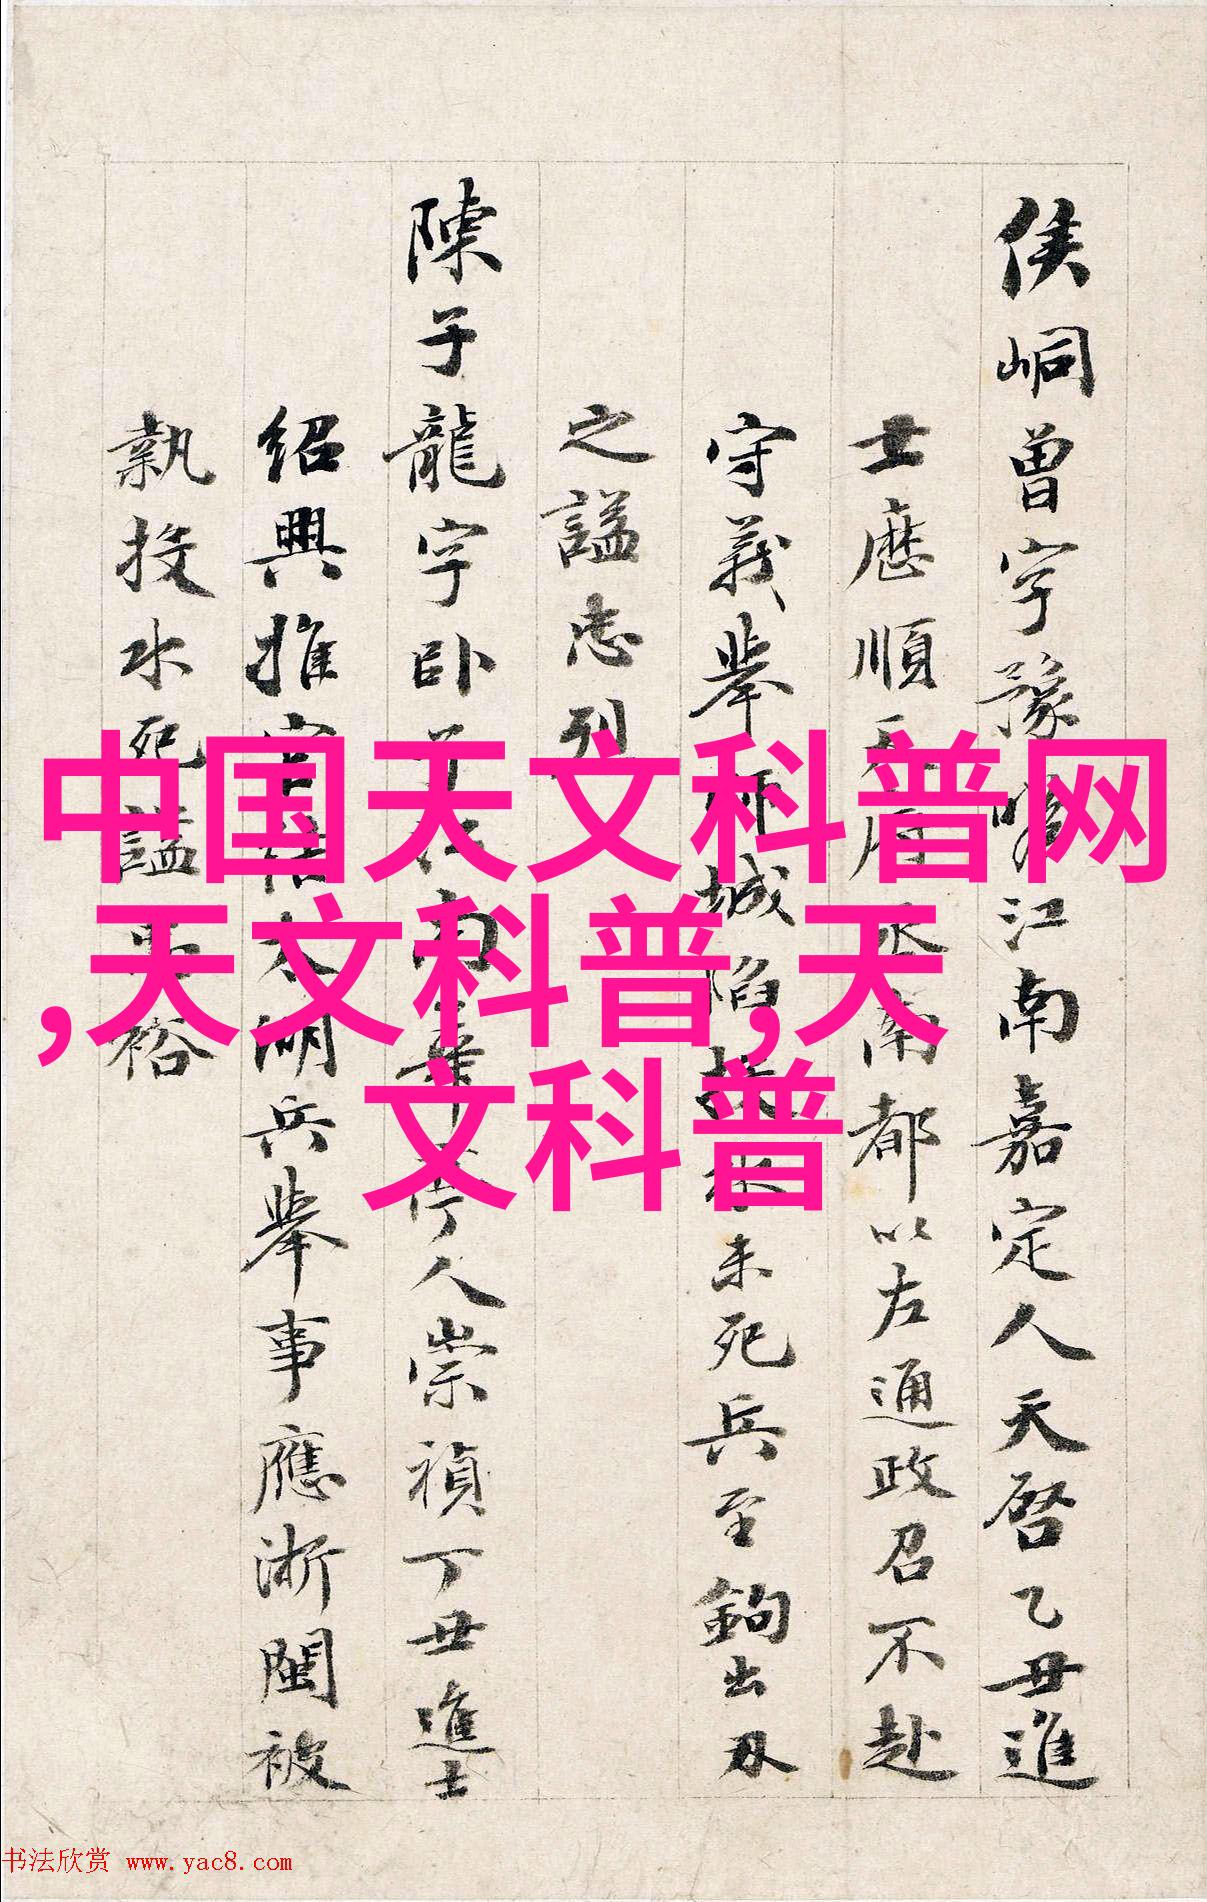 侯峒曾字豫瞻江南嘉定人天啓乙丑進
士歷順天府丞南都以左通政召不赴
守義舉師城陷投水未死兵至鉤出刃
之謚忠烈
陳子龍字卧子江南華亭人崇禎丁丑進士
紹興推官結太湖兵舉事應浙閩被
執投水死謚忠裕
中国天文科普网
,天文科普,天
文科普
书法欣赏 www.yac8.com